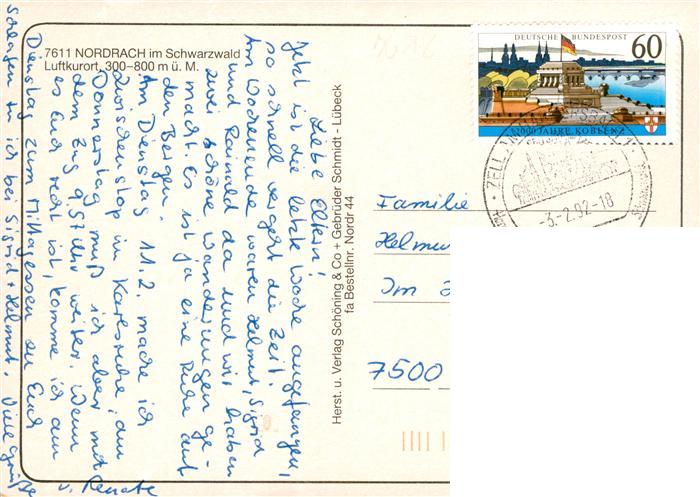 7611 NORDRACH im Schwarzwald
Luftkurort, 300–800 m ü. M.
Liebe Eltern!
Jetzt ist die letzte Woche angefangen,
so schnell vergeht die Zeit.
Am Wochenende waren Helmut, Sigrid
und Rainald da und wir haben
zwei schöne Wanderungen ge-
macht. Es ist ja eine Ruhe auf
den Bergen.
Am Dienstag 11.2. mache ich
Zwischenstop in Karlsruhe, am
Donnerstag muß ich aber mit
dem Zug 9.57 Uhr weiter. Wenn
es Euch recht ist, komme ich am
Dienstag zum Mittagessen zu Euch
schlafen tu ich bei Sigrid + Helmut. Viele Grüße
v. Renate
Herst. u. Verlag Schöning & Co + Gebrüder Schmidt - Lübeck
fa Bestellnr. Nordr 44
DEUTSCHE BUNDESPOST
60
2000 JAHRE KOBLENZ
ZELL
-3.-2.92-18
Familie
Helmu
Im
7500